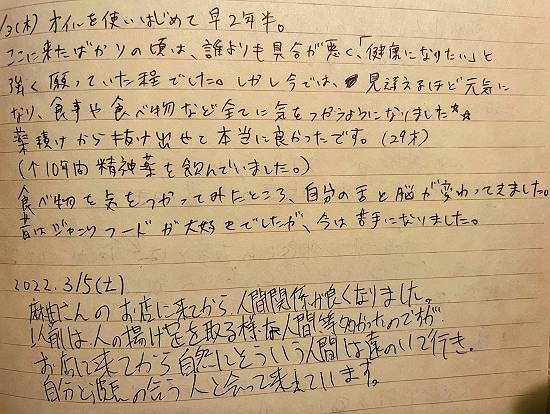 /3(木) オイルを使いはじめて早2年半。
ここに来たばかりの頃は、誰よりも具合が悪く、「健康になりたい」と
強く願っていた程でした。しかし今では、見違えるほど元気に
なり、食事や食べ物など全てに気をつかうようになりました☆☆
薬漬けから抜け出せて本当に良かったです。(29才)
(↑10年間精神薬を飲んでいました。)
食べ物を気をつかってみたところ、自分の舌と脳が変わってきました。
昔はジャンクフードが大好きでしたが、今は苦手になりました。
2022.3/5(土)
さんのお店に来てから、人間関係が良くなりました。
以前は人の揚げ足を取る様な人間等多かったのですが
お店に来てから自然にそういう人間は遠のいて行き、
自分と波長の合う人と会って来ています。